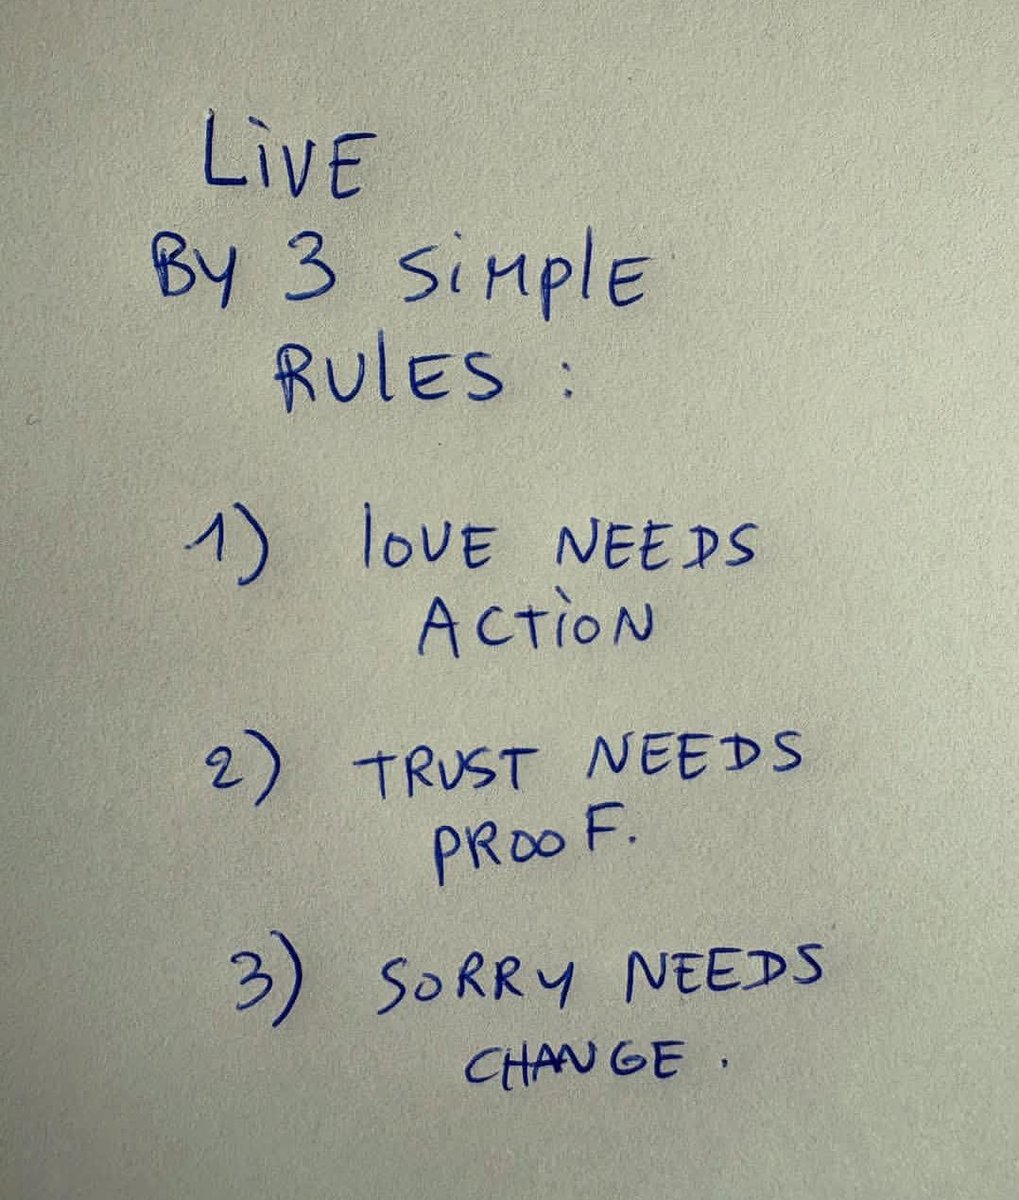 LiVE
By 3 SiMplE
RUlES :
1) lOVE NEEDS
ACTiON
2) TRUST NEEDS
PROOF.
3) SORRY NEEDS
CHANGE .